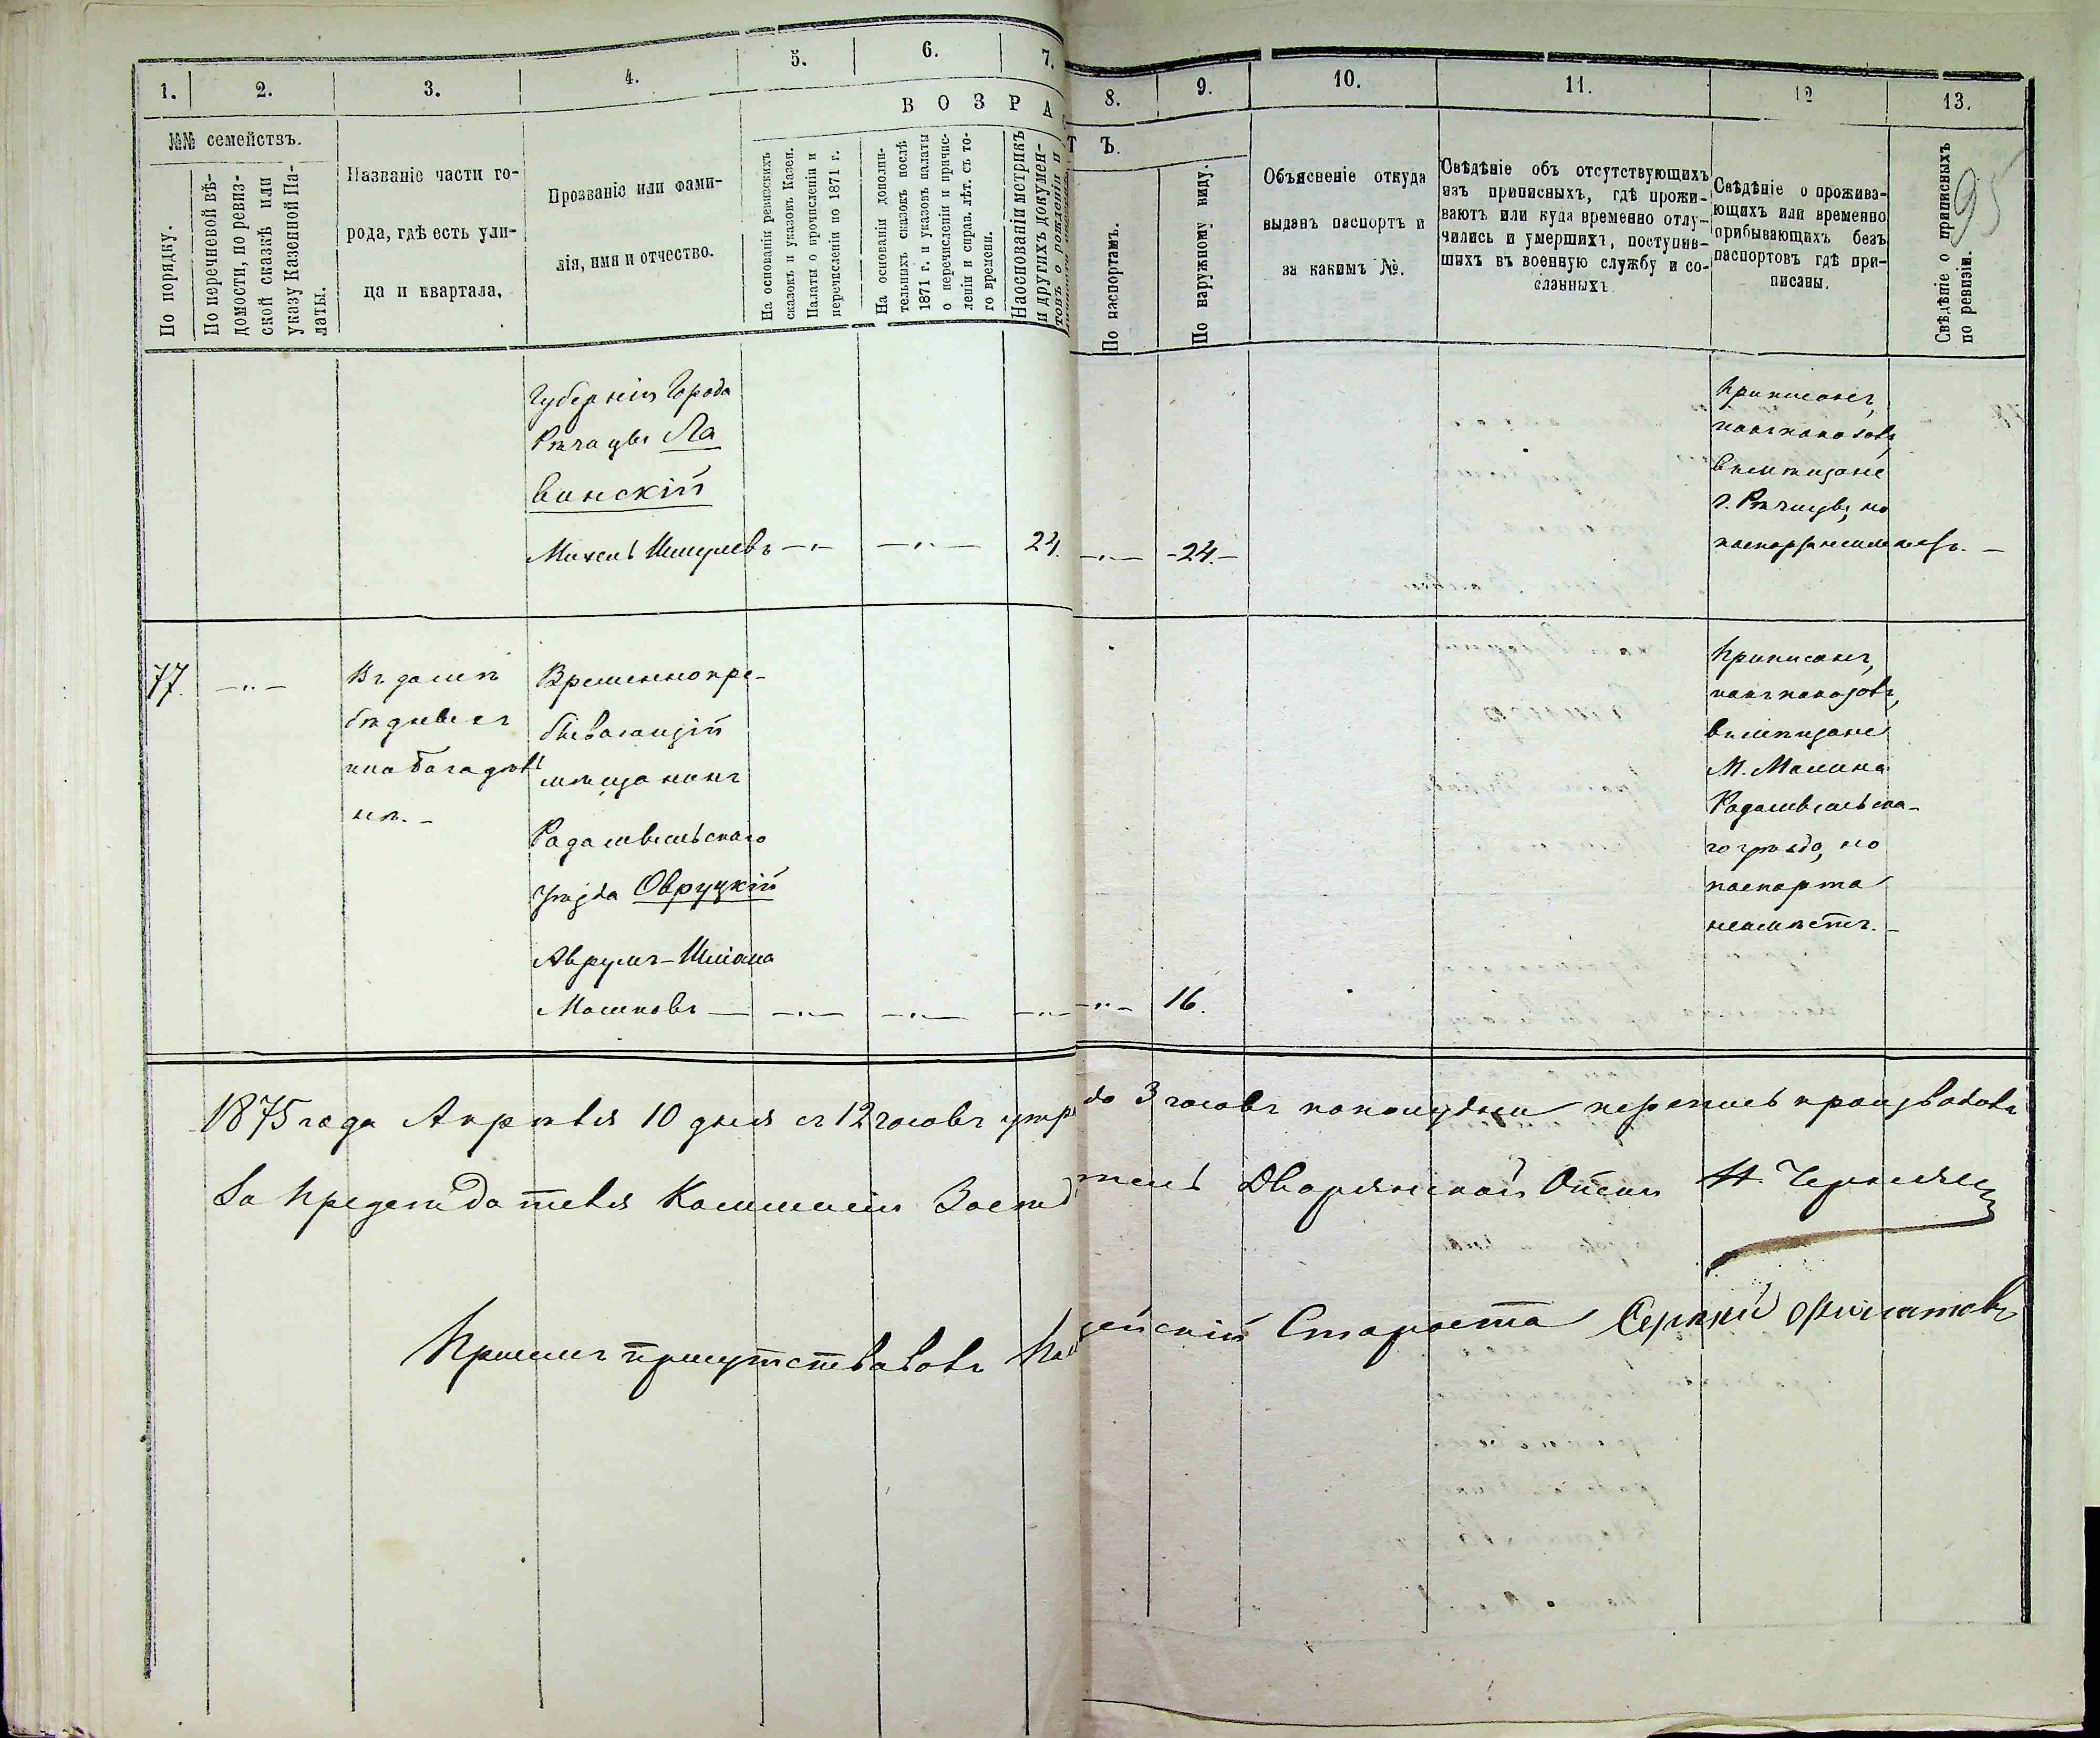 1. 2. 3. 4. 5. 6. 7. 8. 9. 10. 11. 12 13.
В О З Р А С Т Ъ.
95
№№ семействъ.
По порядку.
По перечневой вѣ-
домости, по ревиз-
ской сказкѣ или
указу Казенной Па-
латы.
Названіе части го-
рода, гдѣ есть ули-
ца и квартала.
Прозваніе или фами-
лія, имя и отчество.
На основаніи ревизскихъ
сказокъ и указовъ Казен.
Палаты о причисленіи и
перечисленіи по 1871 г.
На основаніи дополни-
тельныхъ сказокъ послѣ
1871 г. и указовъ палаты
о перечисленіи и причис-
леніи и справ. лѣт. съ то-
го времени.
На основаніи метрикъ
и другихъ докумен-
товъ о рожденіи и
По паспортамъ.
По наружному виду.
Объясненіе откуда
выданъ паспортъ и
за какимъ №.
Свѣдѣніе объ отсутствующихъ
изъ приписныхъ, гдѣ прожи-
ваютъ или куда временно отлу-
чились и умершихъ, поступив-
шихъ въ военную службу и со-
сланныхъ
Свѣдѣніе о прожива-
ющихъ или временно
прибывающихъ безъ
паспортовъ гдѣ при-
писаны.
Свѣдѣніе о приписныхъ
по ревизіи.
Губерніи Города
Рѣчицы Ла
винскій
Михель Шмулевъ —„— —„— 24. —„— -24.-
Приписанъ,
какъ показалъ,
вмѣщане
г. Рѣчицы, но
паспорта неимѣетъ. —
77. —„—
Въ домѣ
бѣдныхъ
при богадѣль
нѣ. -
Временно пре-
бывающій
мѣщанинъ
Радомысльскаго
Уѣзда Овруцкій
Аврумъ-Шліома
Мошковъ — —„— —„— —„— —„— 16.
Приписанъ,
какъ показалъ,
вмѣщане
М. Малина
Радомысльска-
го уѣзда, но
паспорта
неимѣетъ. -
1875 года Апрѣля 10 дня съ 12 часовъ утра до 3 часовъ пополудни перепись производилъ
За Предсѣдателя Коммисіи Засѣдатель Дворянской Опеки Н. Чернявс
При семъ присутствовалъ Полицейскій Староста Сергѣй Филатовъ